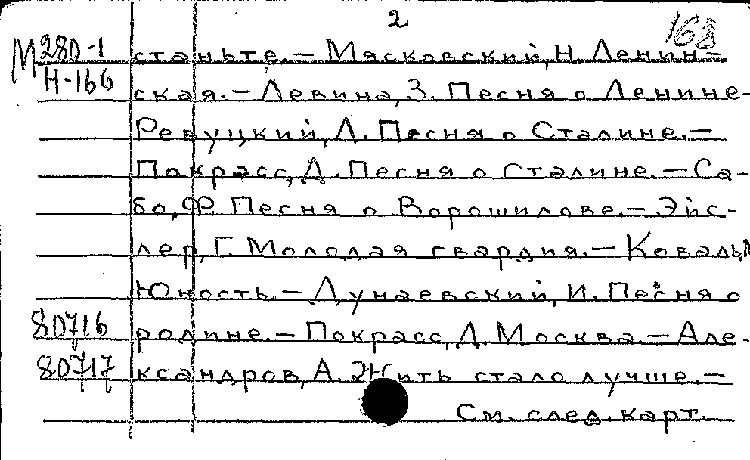 2
168
М 280-1 станьте.- Мясковский, Н. Ленин-
Н-166 ская.- Левина, З. Песня о Ленине-
Ревуцкий, Л. Песня о Сталине.-
Покрасс, Д. Песня о Сталине.- Са-
бо, Ф. Песня о Ворошилове.- Эйс-
лер, Г. Молодая гвардия.- Коваль, М
Юность.- Дунаевский, И. Песня о
80716 родине.- Покрасс, Д. Москва.- Але-
80717 ксандров, А. Жить стало лучше.-
См. след. карт.